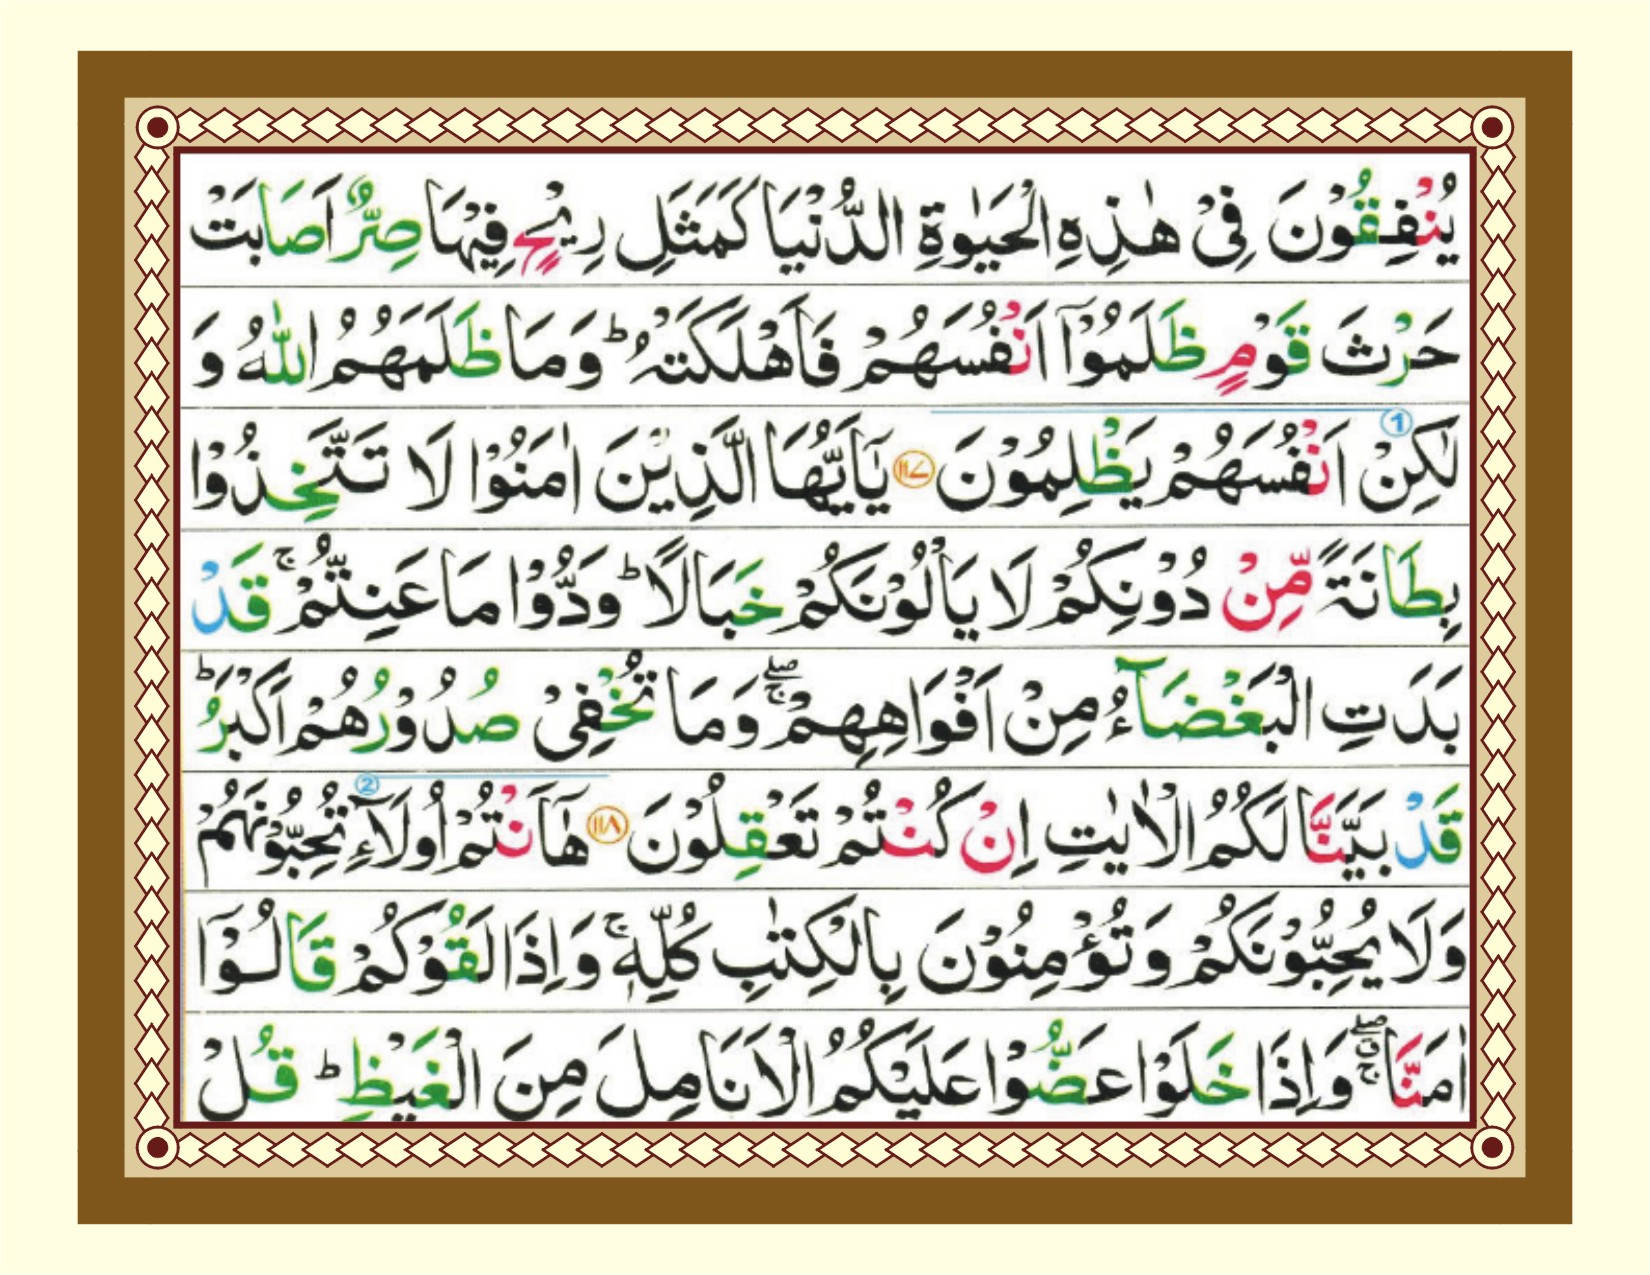 يُنْفِقُوْنَ فِىْ هٰذِهِ الْحَيٰوةِ الدُّنْيَا كَمَثَلِ رِيْحٍ فِيْهَا صِرٌّ اَصَابَتْ
حَرْثَ قَوْمٍ ظَلَمُوْۤا اَنْفُسَهُمْ فَاَهْلَكَتْهُ ؕ وَمَا ظَلَمَهُمُ اللّٰهُ وَ
لٰكِنْ اَنْفُسَهُمْ يَظْلِمُوْنَ ﴿۱۱۷﴾ يٰۤاَيُّهَا الَّذِيْنَ اٰمَنُوْا لَا تَتَّخِذُوْا
بِطَانَةً مِّنْ دُوْنِكُمْ لَا يَاْلُوْنَكُمْ خَبَالًا ؕ وَدُّوْا مَا عَنِتُّمْ ۚ قَدْ
بَدَتِ الْبَغْضَآءُ مِنْ اَفْوَاهِهِمْ ۖۚ وَمَا تُخْفِىْ صُدُوْرُهُمْ اَكْبَرُ ؕ
قَدْ بَيَّنَّا لَكُمُ الْاٰيٰتِ اِنْ كُنْتُمْ تَعْقِلُوْنَ ﴿۱۱۸﴾ هٰۤاَنْتُمْ اُولَآءِ تُحِبُّوْنَهُمْ
وَلَا يُحِبُّوْنَكُمْ وَتُؤْمِنُوْنَ بِالْكِتٰبِ كُلِّهٖ ۚ وَاِذَا لَقُوْكُمْ قَالُوْۤا
اٰمَنَّا ۖۗۚ وَاِذَا خَلَوْا عَضُّوْا عَلَيْكُمُ الْاَنَامِلَ مِنَ الْغَيْظِ ؕ قُلْ